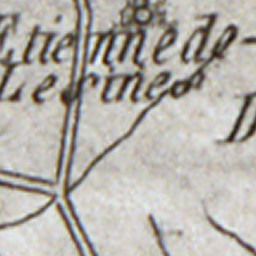 Etienne de-
Lerine
D